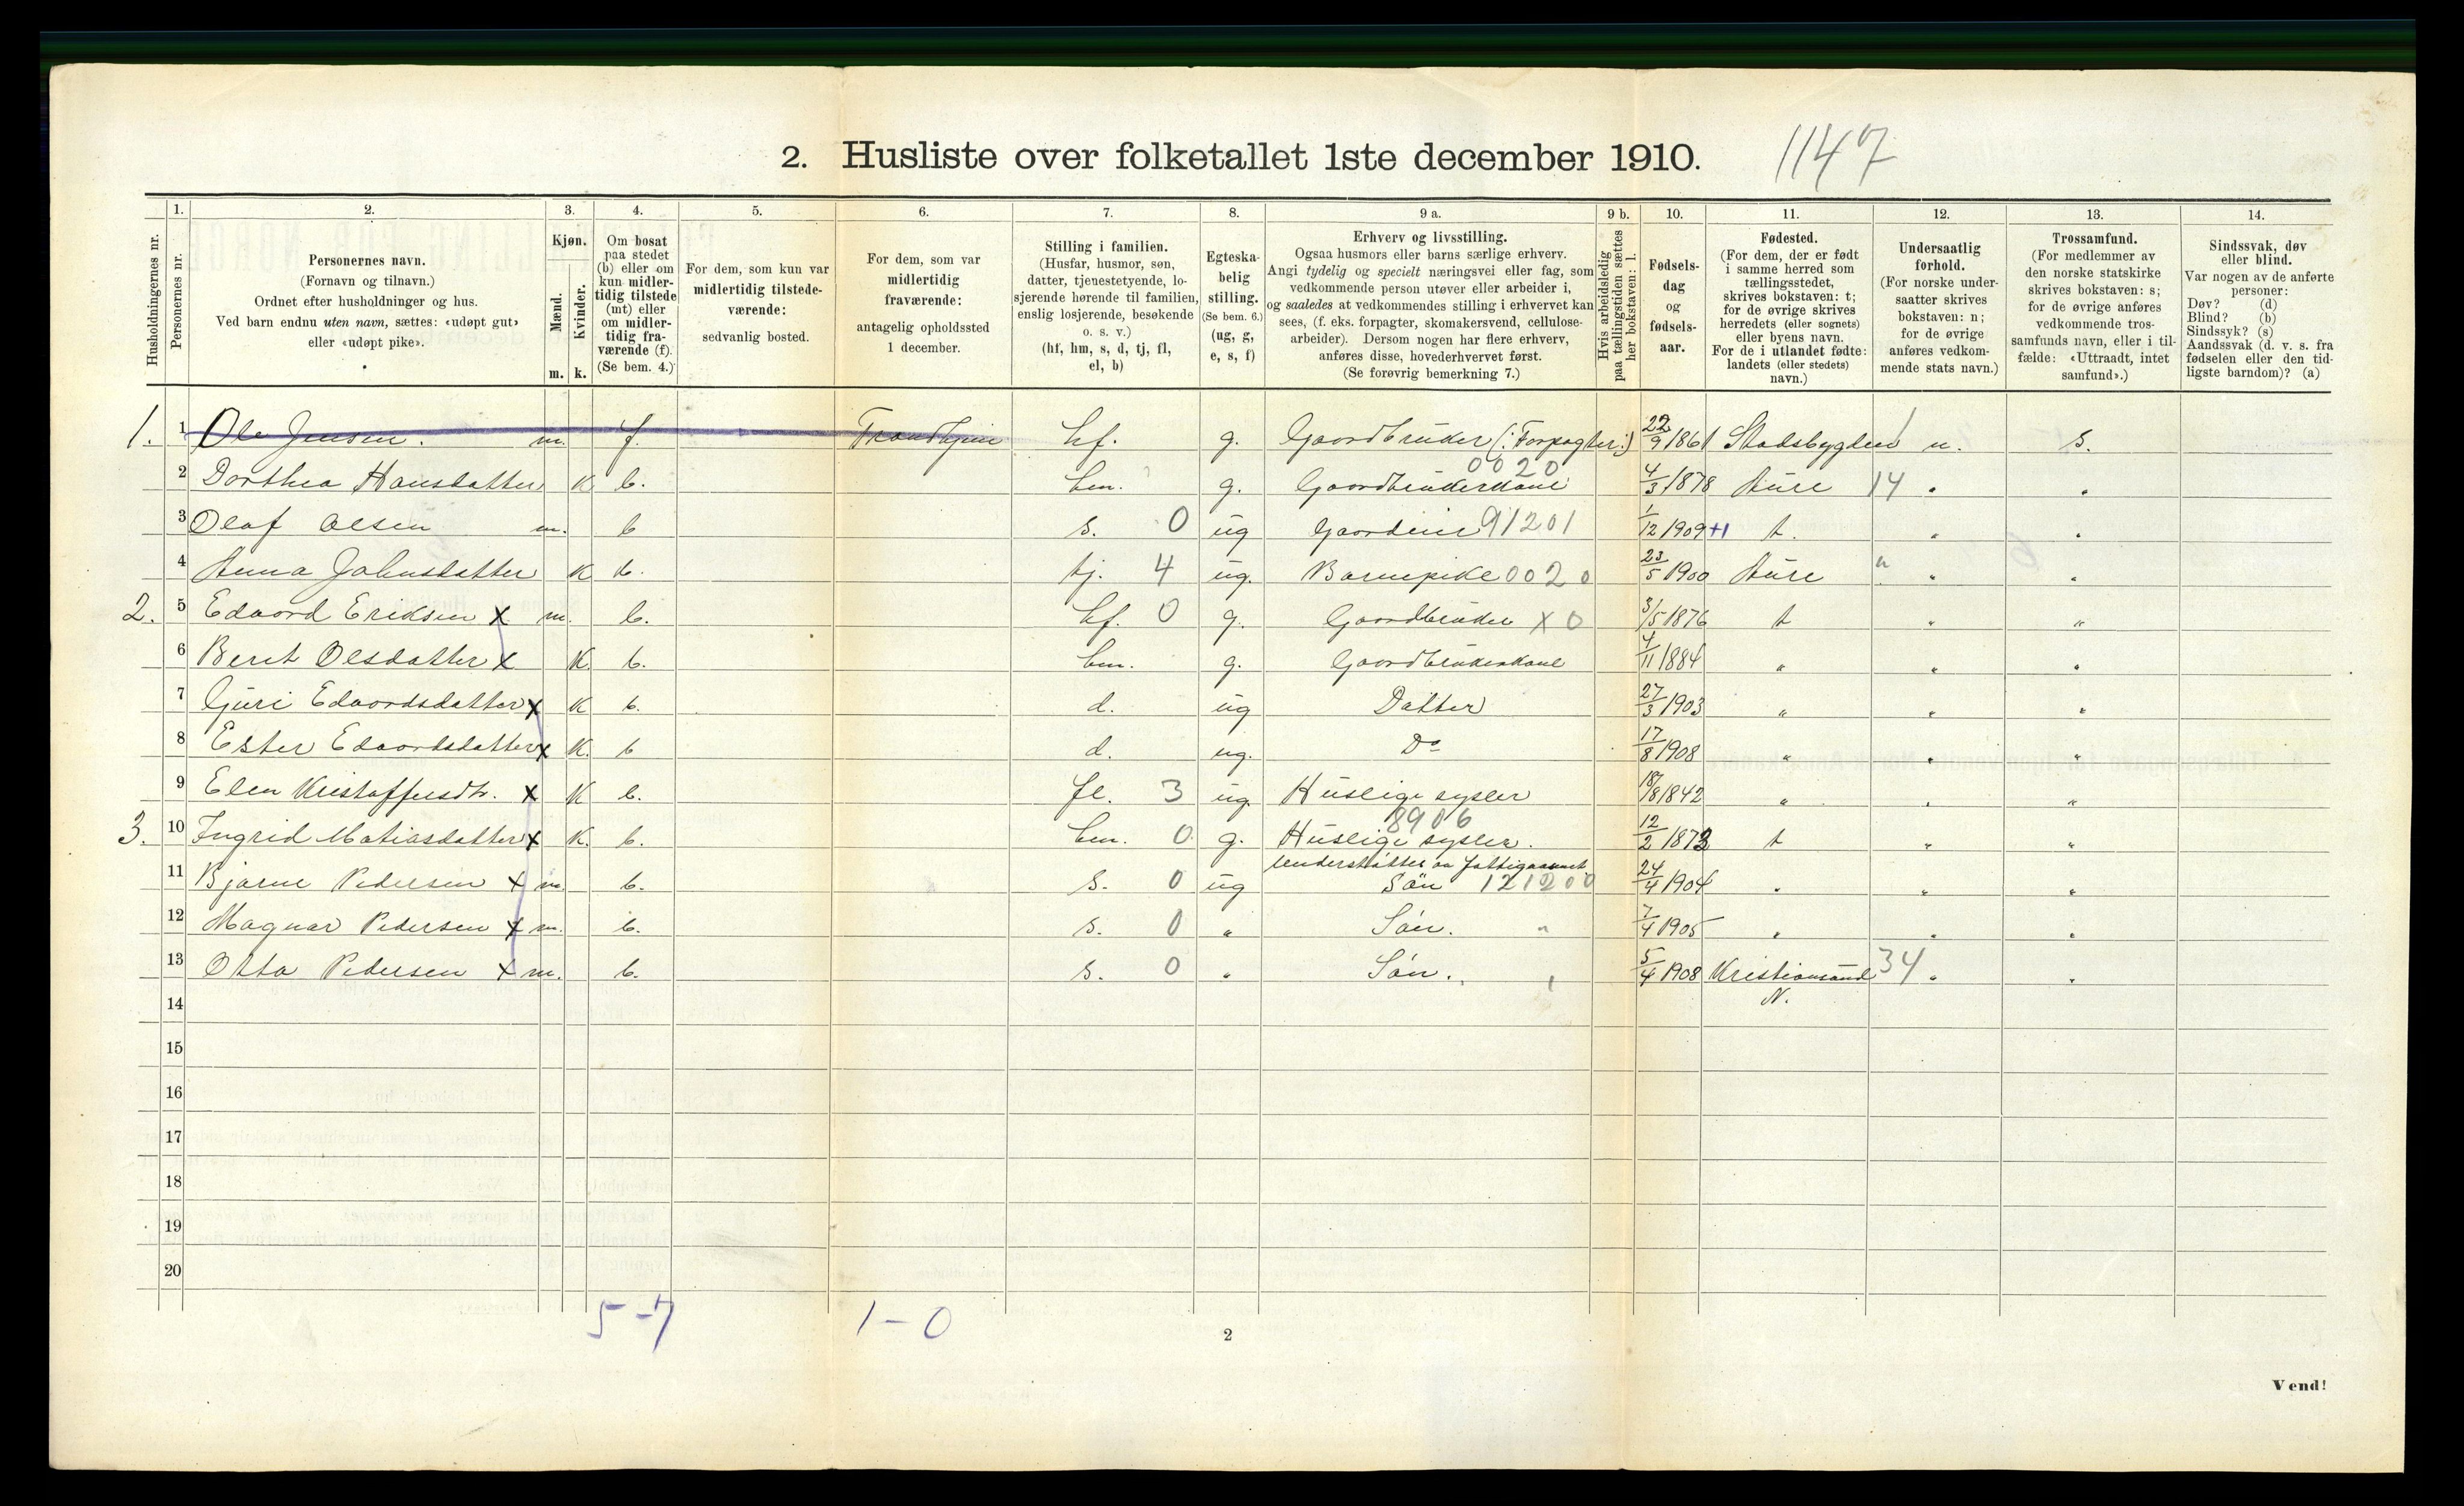 2. Husliste over folketallet 1ste december 1910. 1147
1. 2. 3. 4. 5. 6. 7. 8. 9 a. 9 b. 10. 11. 12. 13. 14.
Husholdningernes nr.
Personernes nr.
Personernes navn.
(Fornavn og tilnavn.)
Ordnet efter husholdninger og hus.
Ved barn endnu uten navn, sættes: «udøpt gut»
eller «udøpt pike».
Kjøn.
Mænd.
Kvinder.
m. k.
Om bosat
paa stedet
(b) eller om
kun midler-
tidig tilstede
(mt) eller
om midler-
tidig fra-
værende (f).
(Se bem. 4.)
For dem, som kun var
midlertidig tilstede-
værende:
sedvanlig bosted.
For dem, som var
midlertidig
fraværende:
antagelig opholdssted
1 december.
Stilling i familien.
(Husfar, husmor, søn,
datter, tjenestetyende, lo-
sjerende hørende til familien,
enslig losjerende, besøkende
o. s. v.)
(hf, hm, s, d, tj, fl,
el, b)
Egteska-
belig
stilling.
(Se bem. 6.)
(ug, g,
e, s, f)
Erhverv og livsstilling.
Ogsaa husmors eller barns særlige erhverv.
Angi tydelig og specielt næringsvei eller fag, som
vedkommende person utøver eller arbeider i,
og saaledes at vedkommendes stilling i erhvervet kan
sees, (f. eks. forpagter, skomakersvend, cellulose-
arbeider). Dersom nogen har flere erhverv,
anføres disse, hovederhvervet først.
(Se forøvrig bemerkning 7.)
Hvis arbeidsledig
paa tællingstiden sættes
her bokstaven: l.
Fødsels-
dag
og
fødsels-
aar.
Fødested.
(For dem, der er født
i samme herred som
tællingsstedet,
skrives bokstaven: t;
for de øvrige skrives
herredets (eller sognets)
eller byens navn.
For de i utlandet fødte:
landets (eller stedets)
navn.)
Undersaatlig
forhold.
(For norske under-
saatter skrives
bokstaven: n;
for de øvrige
anføres vedkom-
mende stats navn.)
Trossamfund.
(For medlemmer av
den norske statskirke
skrives bokstaven: s;
for de øvrige anføres
vedkommende tros-
samfunds navn, eller i til-
fælde: «Uttraadt, intet
samfund».)
Sindssvak, døv
eller blind.
Var nogen av de anførte
personer:
Døv? (d)
Blind? (b)
Sindssyk? (s)
Aandssvak (d. v. s. fra
fødselen eller den tid-
ligste barndom)? (a)
1. 1 Ole Jensen. m. f. Trondhjem hf. g. Gaardbruker (: Forpagter:) 22/9 1861 Stadsbygden / n. s.
2 Dorthea Hansdatter K b. hm. g. Gaardbrukerkone 0020 4/3 1878 Aure 14 " "
3 Olaf Olsen m. b s. 0 ug Gaardeier 91201 1/12 1909 +1 t. " "
4 Anna Johnsdatter K b. tj. 4 ug. Barnepike 0020 23/5 1900 Aure " " "
2. 5 Edvard Eriksen x m. b. hf. 0 g. Gaardbruker x 0 3/5 1876 t " "
6 Beret Olsdatter x K. b. hm. g. Gaardbrukerkone 4/11 1884 " " "
7 Guri Edvardsdatter x K b. d. ug Datter 27/3 1903 " " "
8 Ester Edvardsdatter x K. b d. ug. Do 17/8 1908 " " "
9 Elen Kristoffersdtr. x K b. fl. 3 ug. Huslige sysler 18/8 1842 " " "
3. 10 Ingrid Matiasdatter x K. b. hm. 0 g. Huslige sysler. 8906 12/2 1873 t " "
understøttes av Fattigvæsnet
11 Bjarne Pedersen x m. b. s. 0 ug Søn 121200 24/4 1904 " " "
12 Magnar Pedersen x m. b. s. 0 " Søn. " 7/4 1905 " " "
13 Otto Pedersen x m. b. s. 0 " Søn. 5/4 1908 Kristiansund 34 " "
N.
14
15
16
17
18
19
20
5-7 1-0
2
Vend!